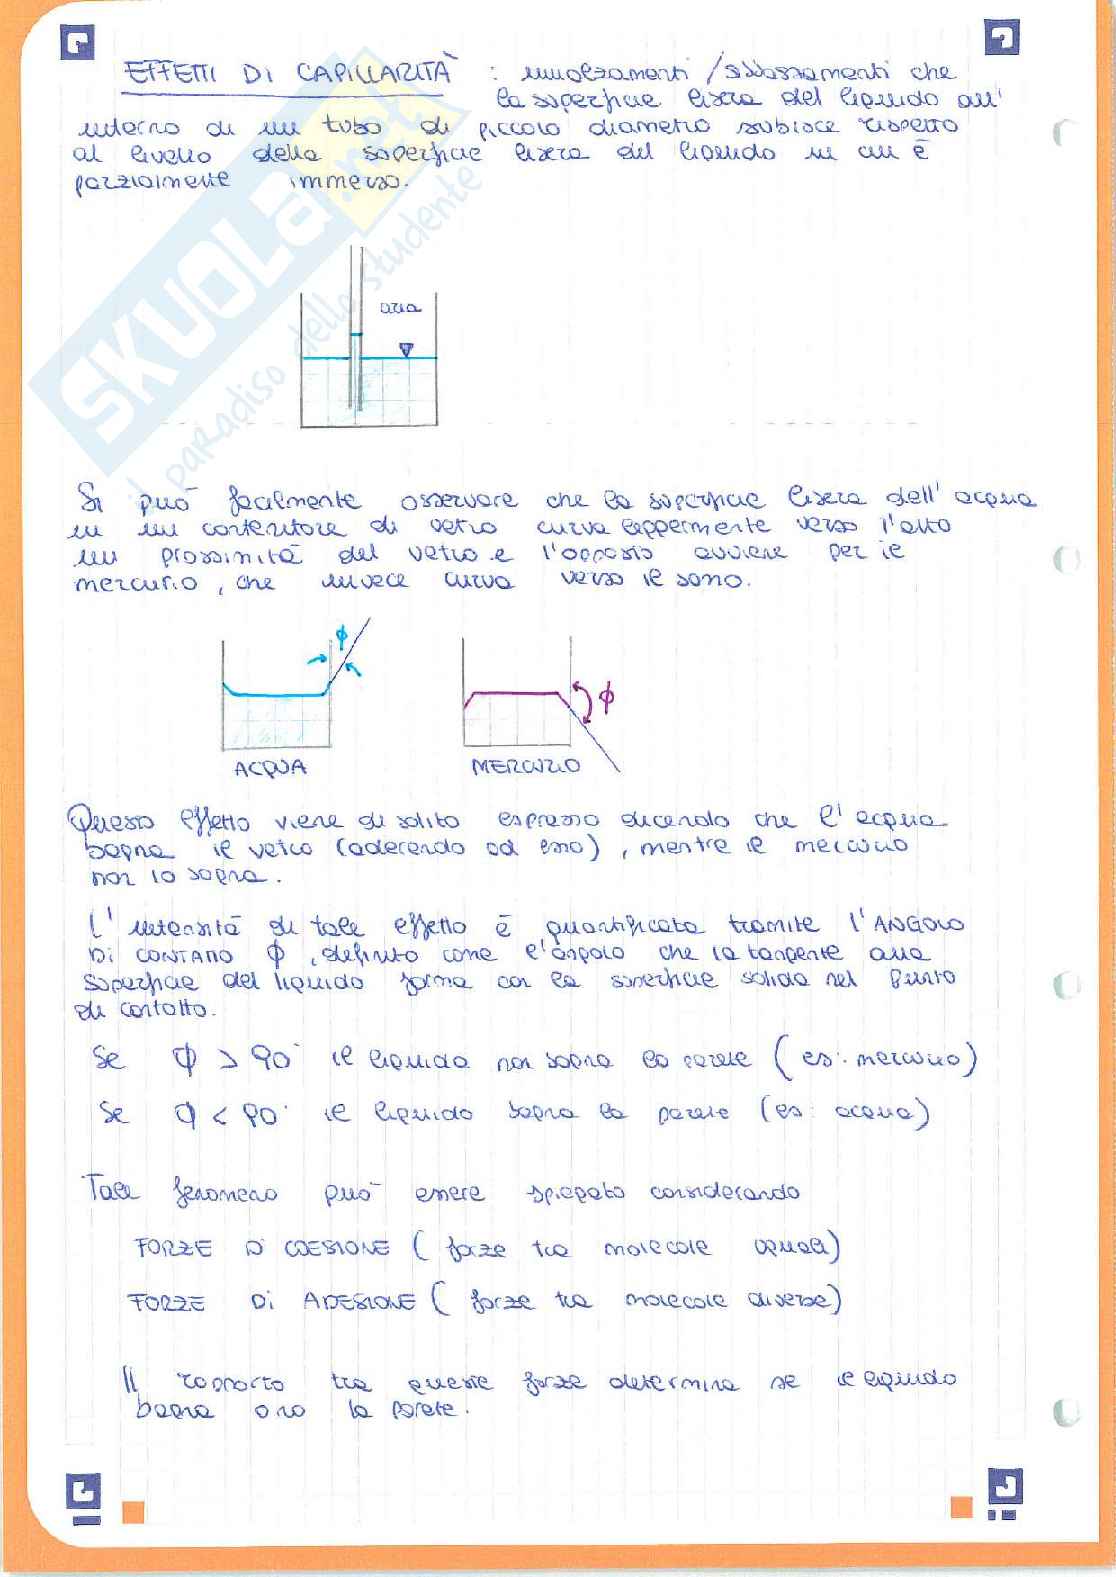 EFFETTI DI CAPILLARITÀ : innalzamenti / abbassamenti che
la superficie libera del liquido all'
interno di un tubo di piccolo diametro subisce rispetto
al livello della superficie libera del liquido in cui è
parzialmente immerso.
SKUOLA.net
il paradiso dello studente
aria
Si può facilmente osservare che la superficie libera dell' acqua
in un contenitore di vetro curva leggermente verso l'alto
in prossimità del vetro e l'opposto avviene per il
mercurio, che invece curva verso il basso.
ϕ
ϕ
ACQUA
MERCURIO
Questo effetto viene di solito espresso dicendo che l'acqua
bagna il vetro (aderendo ad esso), mentre il mercurio
non lo bagna.
L'intensità di tale effetto è quantificata tramite l'ANGOLO
DI CONTATTO ϕ, definito come l'angolo che la tangente alla
superficie del liquido forma con la superficie solida nel punto
di contatto.
Se ϕ > 90° il liquido non bagna la parete (es: mercurio)
Se ϕ < 90° il liquido bagna la parete (es: acqua)
Tale fenomeno può essere spiegato considerando
FORZE DI COESIONE ( forze tra molecole uguali)
FORZE DI ADESIONE ( forze tra molecole diverse)
Il rapporto tra queste forze determina se il liquido
bagna o no la parete.